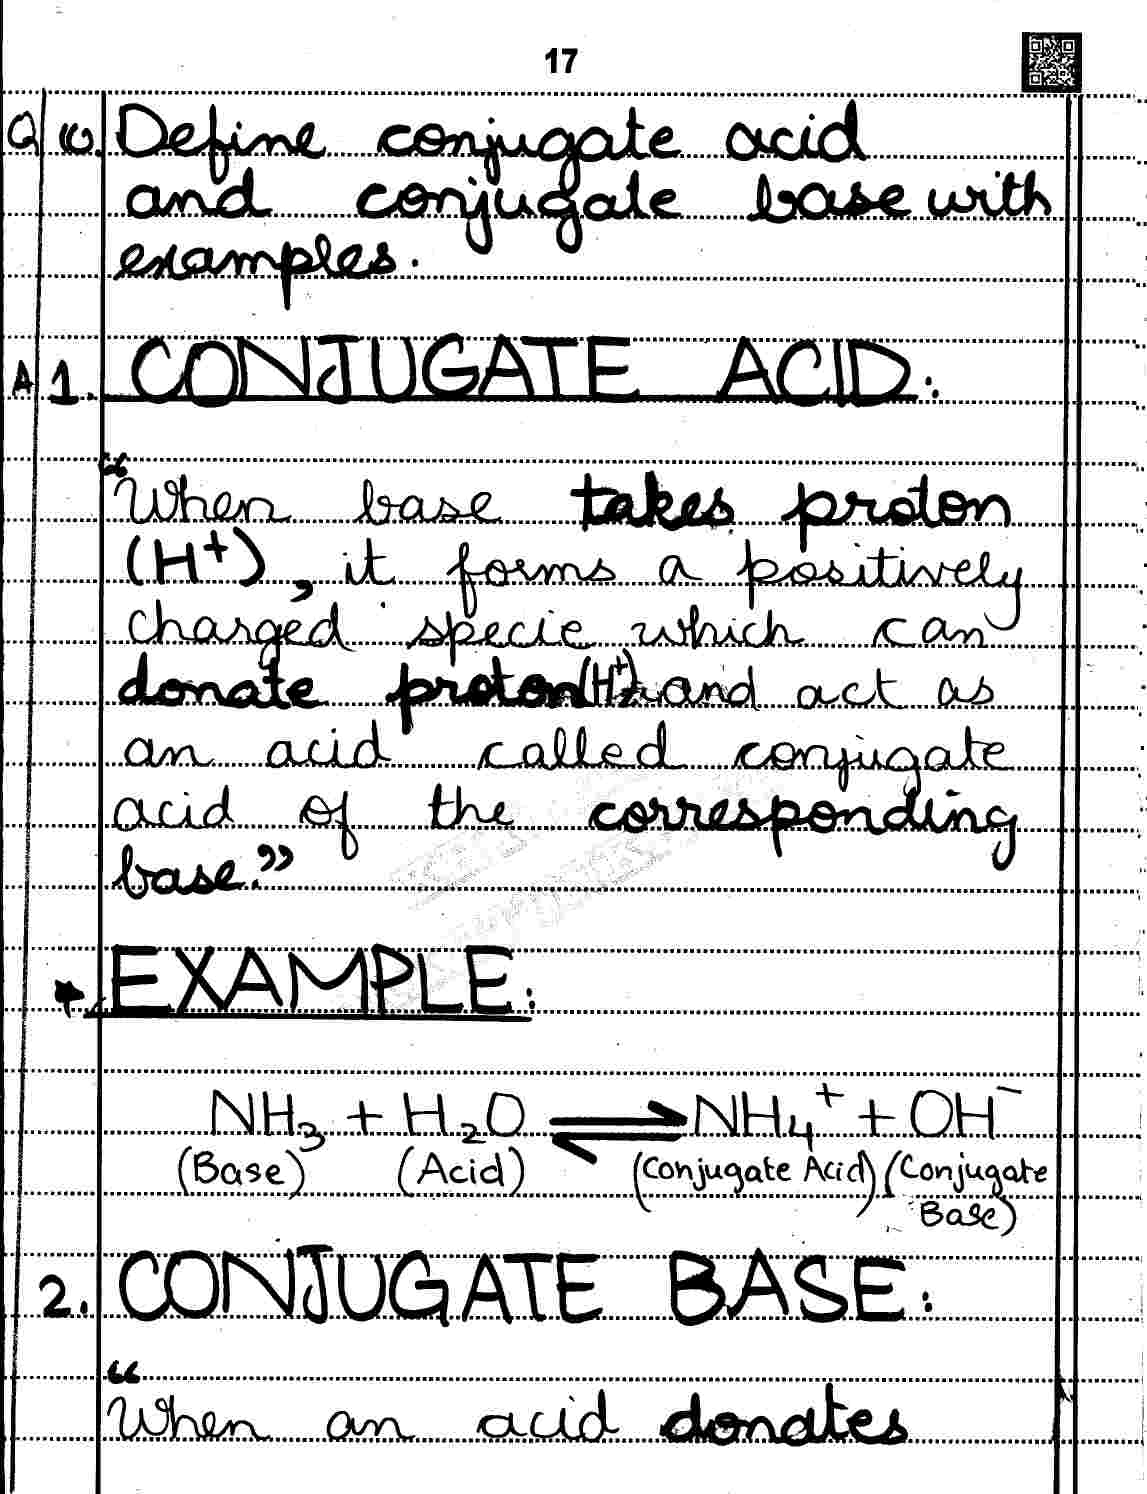 17
Q 10. Define conjugate acid
and conjugate base with
examples.
A 1. CONJUGATE ACID:
“When base takes proton
(H⁺), it forms a positively
charged specie which can
donate proton (H⁺) and act as
an acid called conjugate
acid of the corresponding
base.”
EXAMPLE:
NH₃ + H₂O ⇌ NH₄⁺ + OH⁻
(Base) (Acid) (Conjugate Acid) (Conjugate
Base)
2. CONJUGATE BASE:
“When an acid donates